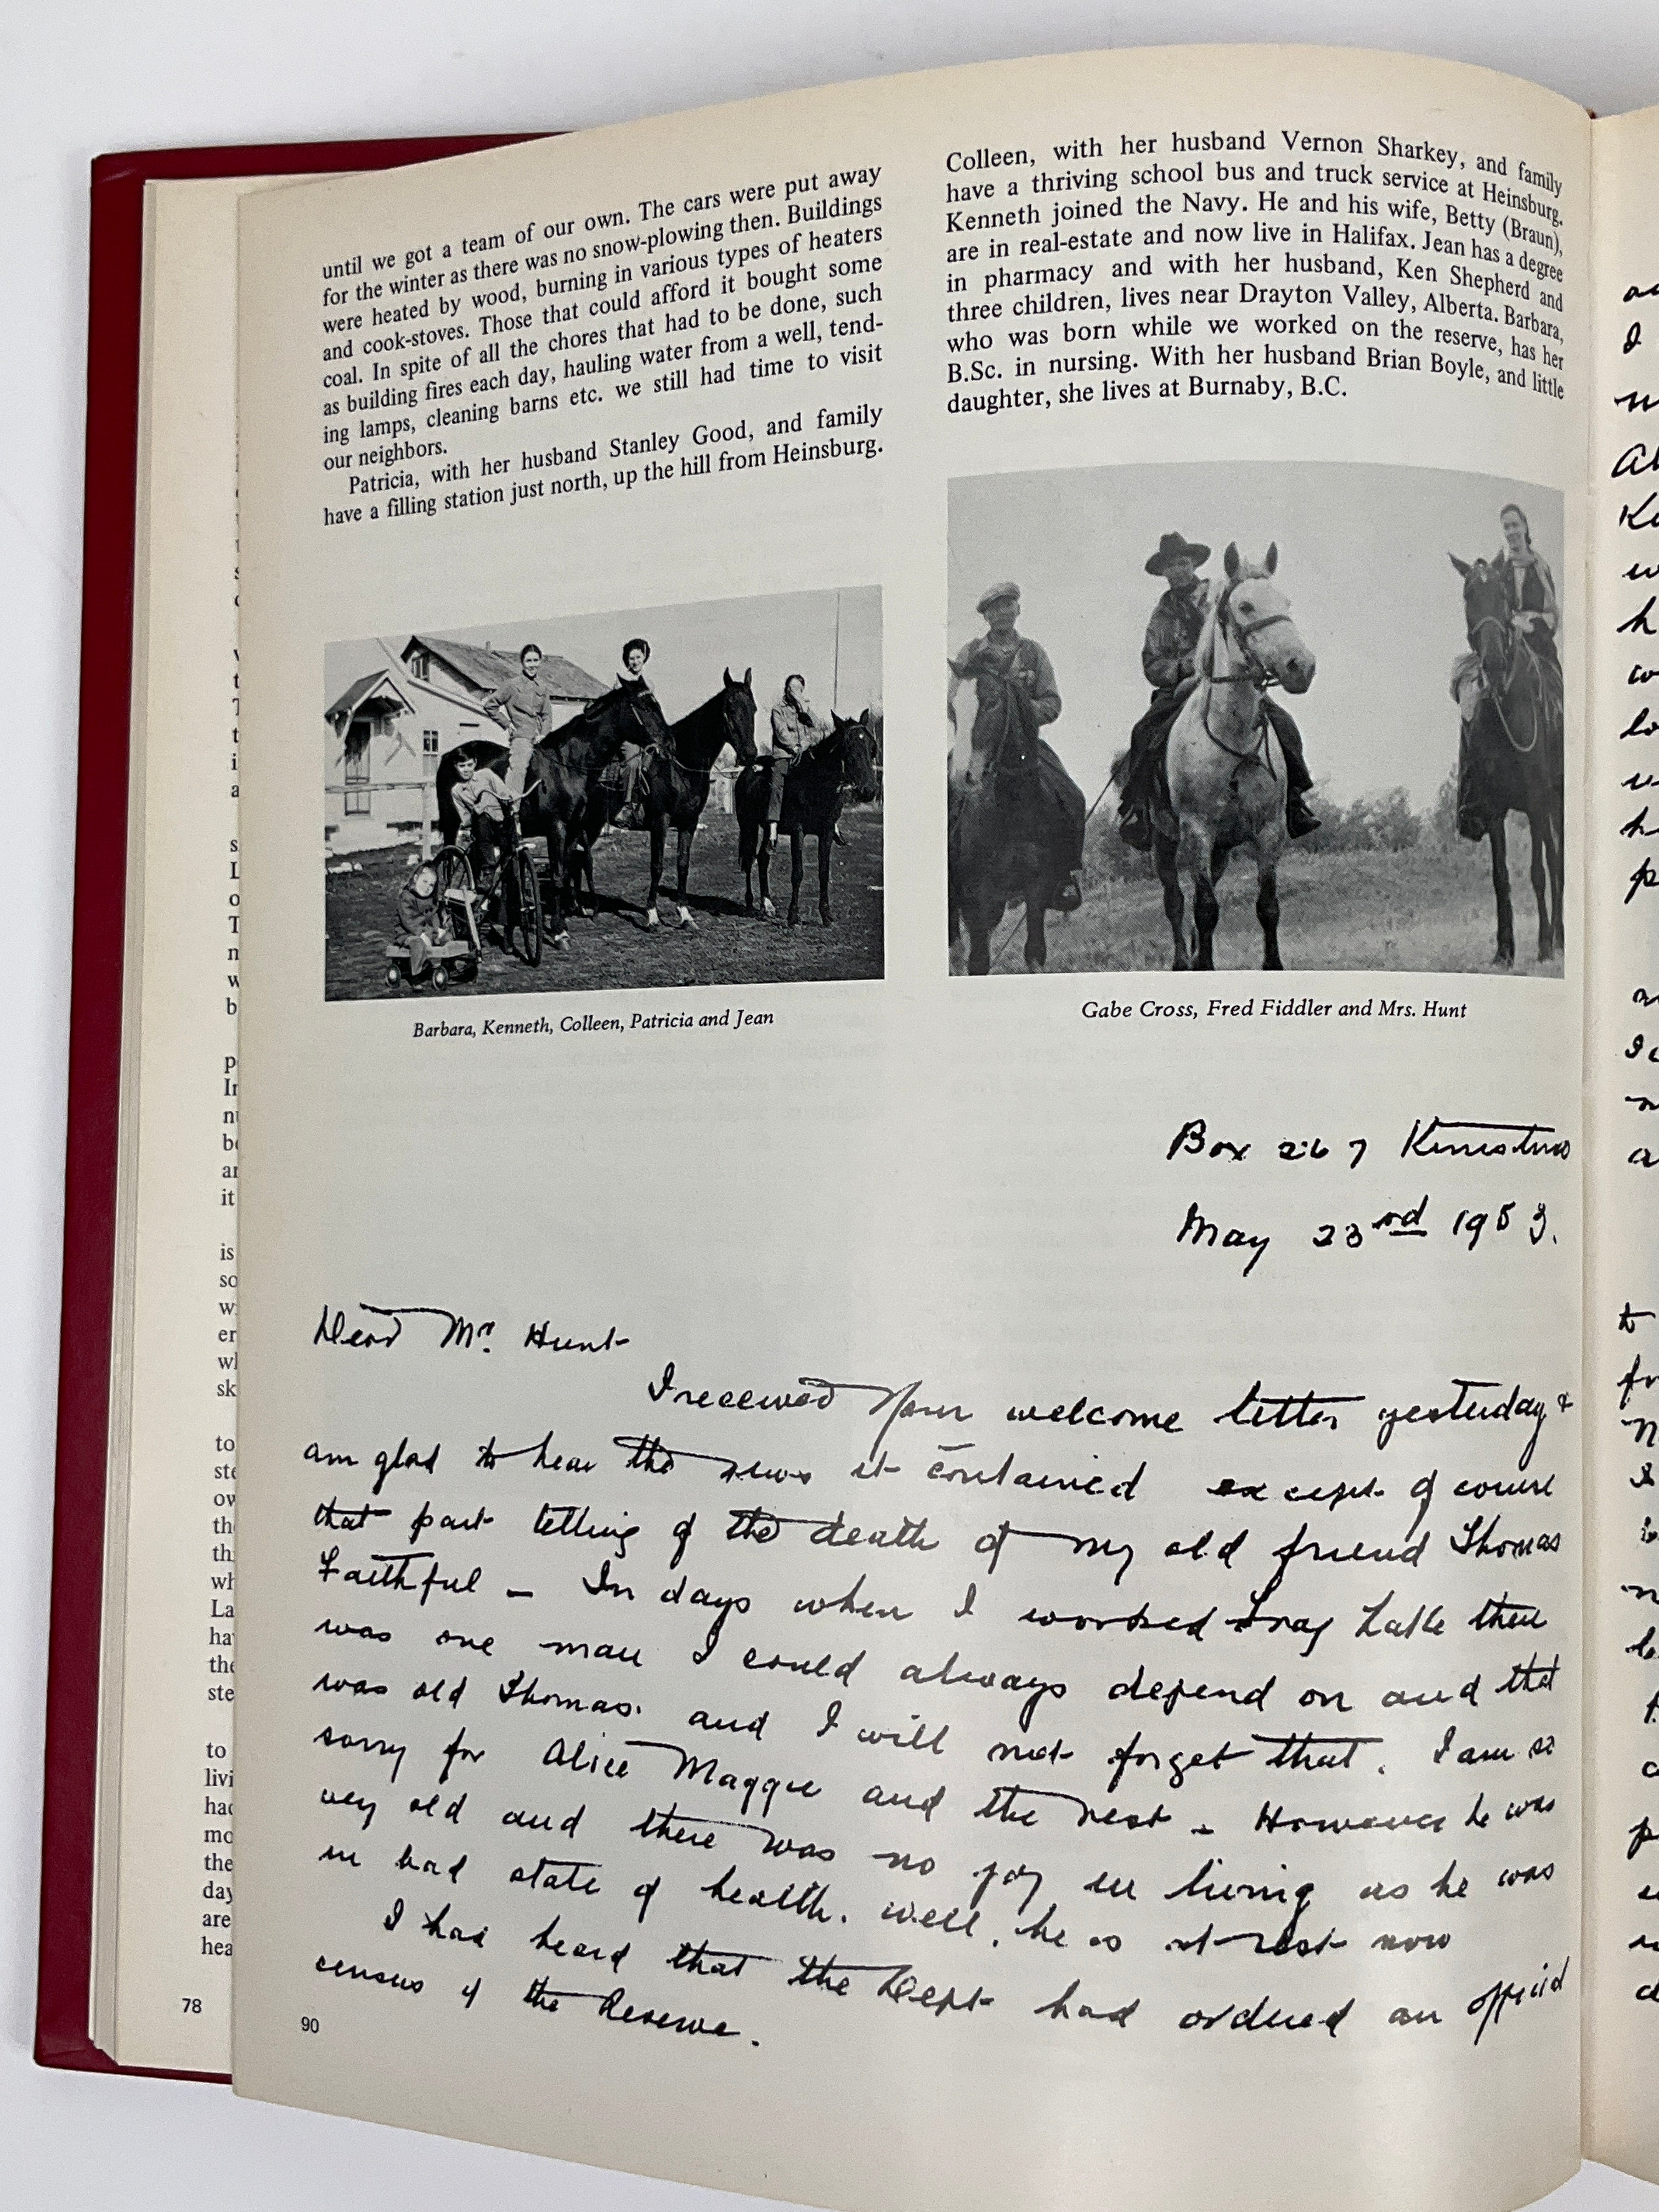 until we got a team of our own. The cars were put away
for the winter as there was no snow-plowing then. Buildings
were heated by wood, burning in various types of heaters
and cook-stoves. Those that could afford it bought some
coal. In spite of all the chores that had to be done, such
as building fires each day, hauling water from a well, tend-
ing lamps, cleaning barns etc. we still had time to visit
our neighbors.
Patricia, with her husband Stanley Good, and family
have a filling station just north, up the hill from Heinsburg.
Colleen, with her husband Vernon Sharkey, and family
have a thriving school bus and truck service at Heinsburg.
Kenneth joined the Navy. He and his wife, Betty (Braun),
are in real-estate and now live in Halifax. Jean has a degree
in pharmacy and with her husband, Ken Shepherd and
three children, lives near Drayton Valley, Alberta. Barbara,
who was born while we worked on the reserve, has her
B.Sc. in nursing. With her husband Brian Boyle, and little
daughter, she lives at Burnaby, B.C.
Barbara, Kenneth, Colleen, Patricia and Jean
Gabe Cross, Fred Fiddler and Mrs. Hunt
Box 267 Kinistino
May 23rd 1953.
Dear Mr. Hunt
I received your welcome letter yesterday &
am glad to hear the news it contained except of course
that part telling of the death of my old friend Thomas
Faithful — In days when I worked Frog Lake there
was one man I could always depend on and that
was old Thomas. and I will not forget that. I am so
sorry for Alice Maggie and the rest - However he was
very old and there was no joy in living as he was
in bad state of health. well, he is at rest now
I had heard that the Dept had ordered an official
census of the Reserve.
78
90